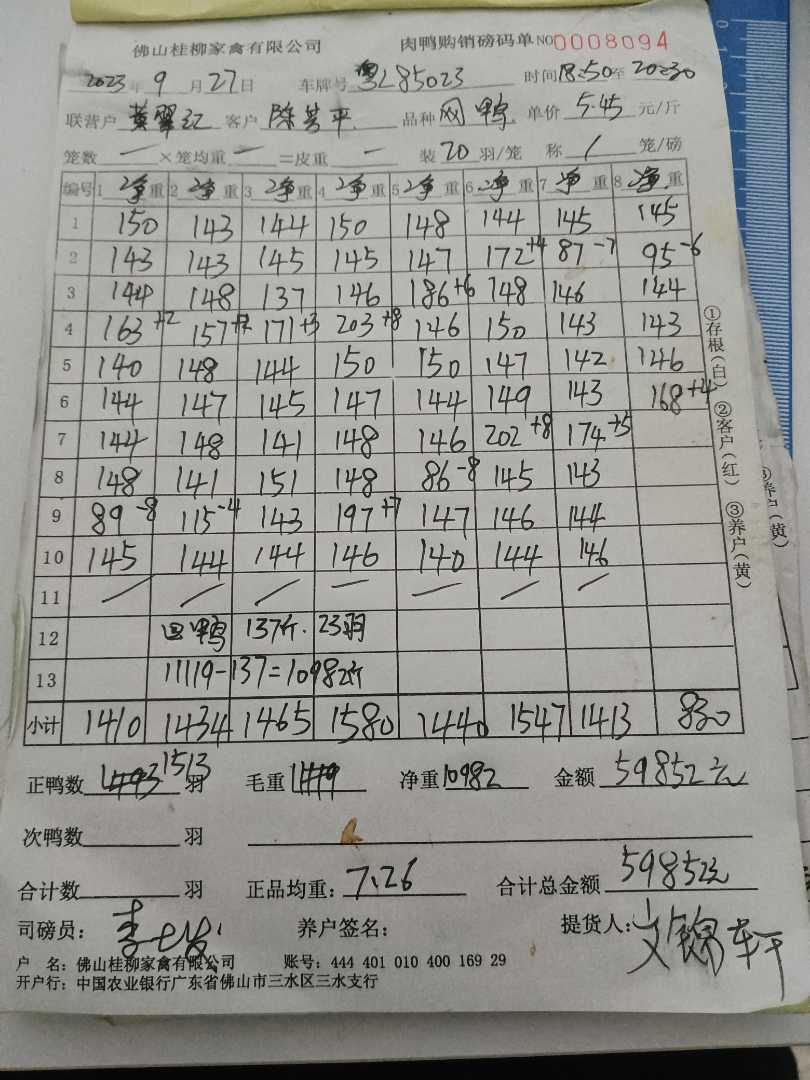 佛山桂柳家禽有限公司 肉鸭购销磅码单 NO 0008094
2023年 9 月 27 日 车牌号 粤L85023 时间 18:50 至 20:30
联营户 黄翠红 客户 陈芳平 品种 网鸭 单价 5.45 元/斤
笼数 — ×笼均重 — =皮重 — 装 20 羽/笼 称 1 笼/磅
编号 1 净重 2 净重 3 净重 4 净重 5 净重 6 净重 7 净重 8 净重
1 150 143 144 150 148 144 145 145
2 143 143 145 145 147 172+4 87-7 95-6
3 144 148 137 146 186+6 148 146 144
4 163+2 157+2 171+3 203+8 146 150 143 143
5 140 148 144 150 150 147 142 146
6 144 147 145 147 144 149 143 168+4
7 144 148 141 148 146 202+8 174+5
8 148 141 151 148 86-8 145 143
9 89-8 115-4 143 197+7 147 146 144
10 145 144 144 146 140 144 146
11 — — — — — — —
12 回鸭 137斤. 23羽
13 11119-137=10982斤
小计 1410 1434 1465 1580 1440 1547 1413 830
正鸭数 1513 羽 毛重 净重 10982 金额 59852元
次鸭数 羽
合计数 羽 正品均重: 7.26 合计总金额 59852元
司磅员: 养户签名: 提货人: 文锦轩
户 名: 佛山桂柳家禽有限公司 账号: 444 401 010 400 169 29
开户行: 中国农业银行广东省佛山市三水区三水支行
①存根(白) ②客户(红) ③养户(黄)
③养户(黄)